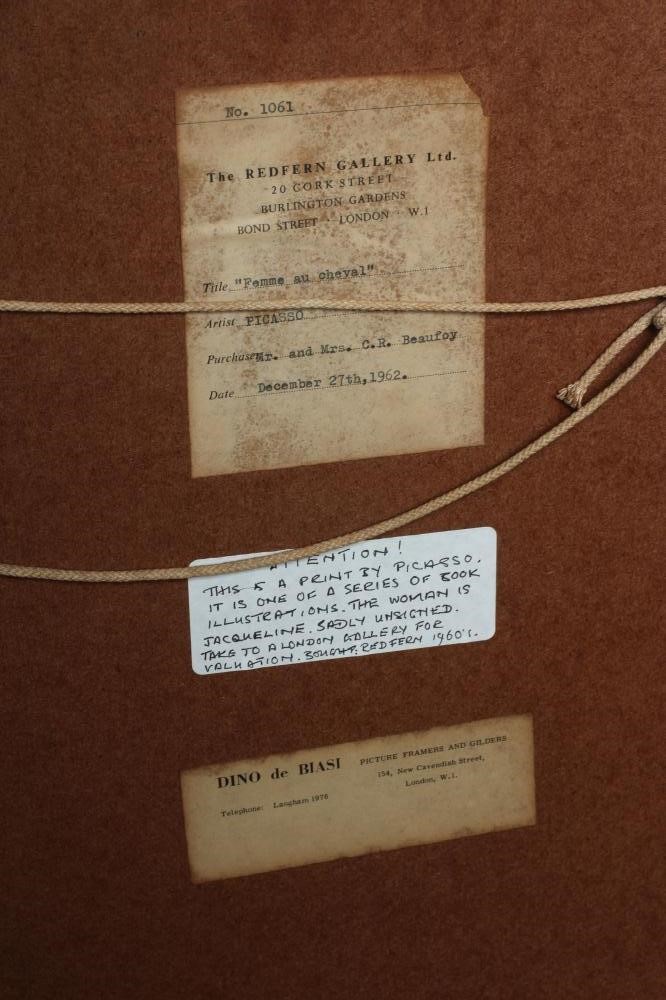 No. 1061
The REDFERN GALLERY Ltd.
20 CORK STREET
BURLINGTON GARDENS
BOND STREET · LONDON · W.1
Title "Femme au cheval"
Artist PICASSO
Purchaser Mr. and Mrs. C.R. Beaufoy
Date December 27th, 1962.
ATTENTION!
THIS IS A PRINT BY PICASSO.
IT IS ONE OF A SERIES OF BOOK
ILLUSTRATIONS. THE WOMAN IS
JACQUELINE. SADLY UNSIGNED.
TAKE TO A LONDON GALLERY FOR
VALUATION. BOUGHT. REDFERN 1960's.
DINO de BIASI PICTURE FRAMERS AND GILDERS
154, New Cavendish Street,
Telephone: Langham 1976 London, W.1.